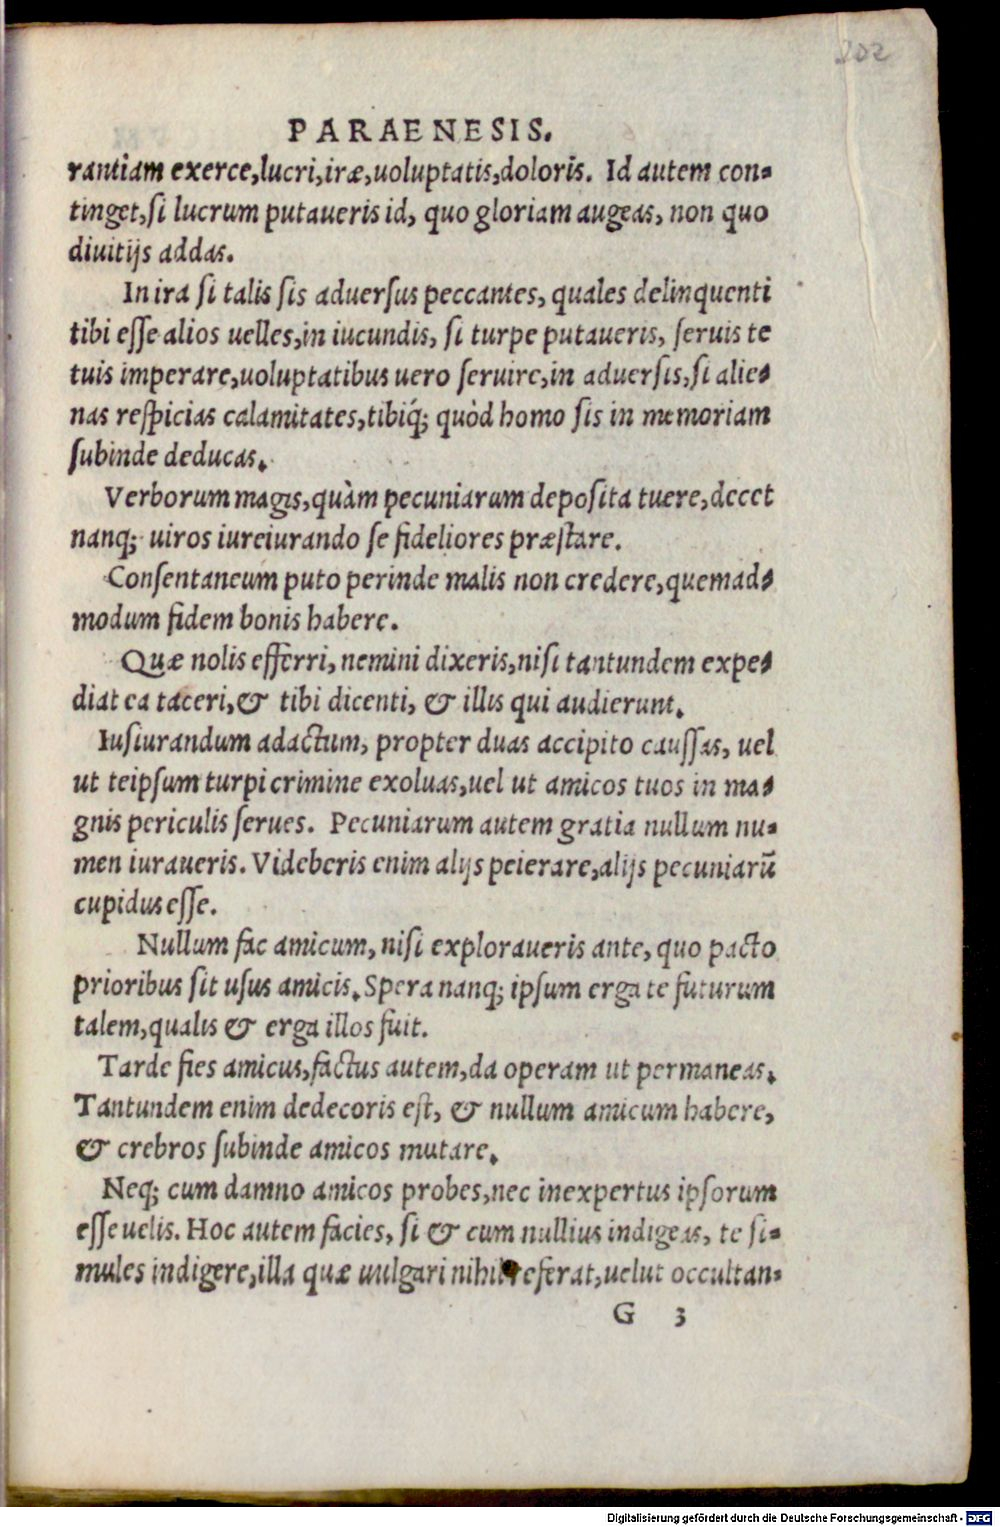 202
PARAENESIS.
rantiam exerce, lucri, iræ, uoluptatis, doloris. Id autem con-
tinget, si lucrum putaueris id, quo gloriam augeas, non quo
diuitijs addas.
In ira si talis sis aduersus peccantes, quales delinquenti
tibi esse alios uelles, in iucundis, si turpe putaueris, seruis te
tuis imperare, uoluptatibus uero seruire, in aduersis, si alie-
nas respicias calamitates, tibiq́; quòd homo sis in memoriam
subinde deducas.
Verborum magis, quàm pecuniarum deposita tuere, decet
nanq; uiros iureiurando se fideliores præstare.
Consentaneum puto perinde malis non credere, quemad-
modum fidem bonis habere.
Quæ nolis efferri, nemini dixeris, nisi tantundem expe-
diat ea taceri, & tibi dicenti, & illis qui audierunt.
Iusiurandum adactum, propter duas accipito caussas, uel
ut teipsum turpi crimine exoluas, uel ut amicos tuos in ma-
gnis periculis serues. Pecuniarum autem gratia nullum nu-
men iuraueris. Videberis enim alijs peierare, alijs pecuniarū
cupidus esse.
Nullum fac amicum, nisi exploraueris ante, quo pacto
prioribus sit usus amicis. Spera nanq; ipsum erga te futurum
talem, qualis & erga illos fuit.
Tarde fies amicus, factus autem, da operam ut permaneas.
Tantundem enim dedecoris est, & nullum amicum habere,
& crebros subinde amicos mutare.
Neq; cum damno amicos probes, nec inexpertus ipsorum
esse uelis. Hoc autem facies, si & cum nullius indigeas, te si-
mules indigere, illa quæ uulgari nihil referat, uelut occultan-
G 3
Digitalisierung gefördert durch die Deutsche Forschungsgemeinschaft - DFG